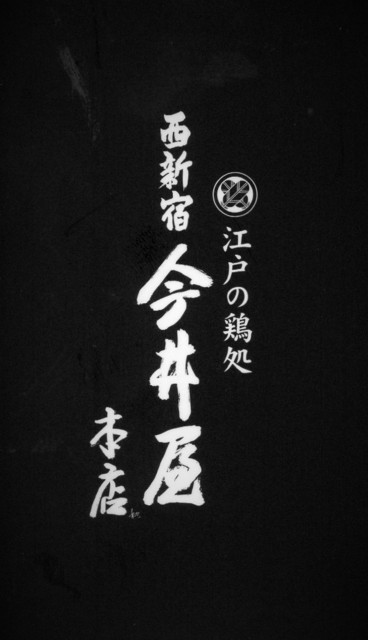 江戸の鶏処
西新宿
今井屋
本店